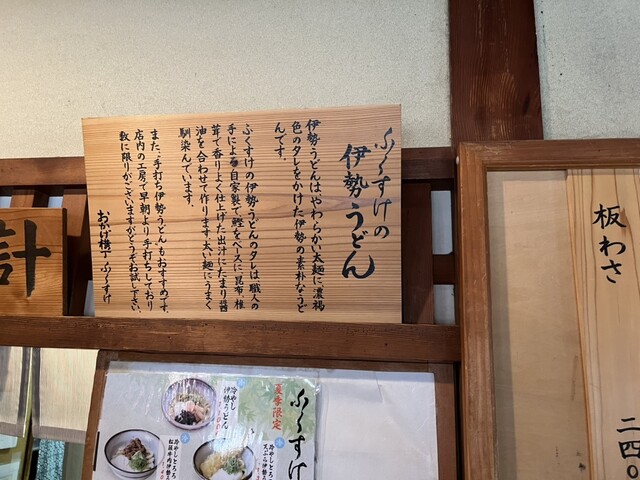 ふくすけの
伊勢うどん
伊勢うどんはやわらかい太麺に、濃褐
色のタレをかけた伊勢の素朴なうど
んです。
ふくすけの伊勢うどんのタレは職人の
手による自家製で鰹をベースに昆布・椎
茸で香りよく仕上げた出汁にたまり醤
油を合わせて作ります。太い麺にうまく
馴染んでいます。
また、手打ち伊勢うどんもおすすめです。
店内の工房で早朝より手打ちしており
数に限りがございますがどうぞお試し下さい。
おかげ横丁ふくすけ
計
板わさ
二四〇
ふくすけ
夏季限定
冷やし
伊勢うどん
冷やしとろろ
天ぷら伊勢う
冷やしとろろ
松阪牛肉伊勢う